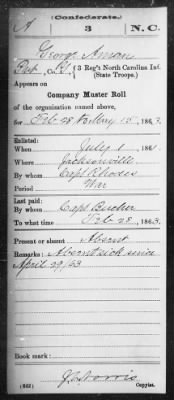 (Confederate.)
A 3 N.C.
George Aman
Pvt, Co. , 3 Reg't North Carolina Inf.
(State Troops.)
Appears on
Company Muster Roll
of the organization named above,
for Feb 28 to May 15, 1863.
Enlisted:
When July 1, 1861.
Where Jacksonville
By whom Capt Rhodes
Period War
Last paid:
By whom Capt
To what time Feb 28, 1863.
Present or absent Absent
Remarks: Absent sick since
April 29/63
Book mark:
J. Norris
(642) Copyist.